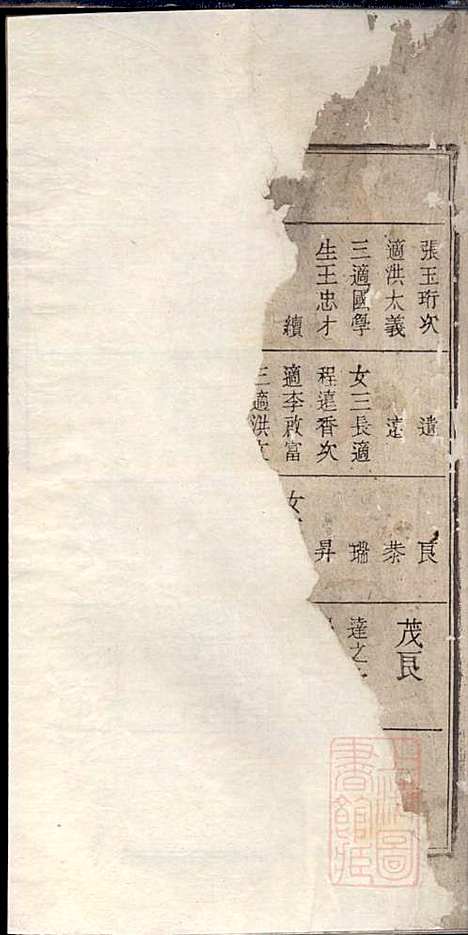 張玉珩次
適洪大義
三適國學
生王忠才
續
遺
遠
女三長適
程遠香次
適李啟富
三適洪文
良
恭
瑞
昇
女
茂良
達之
上海圖
書館藏